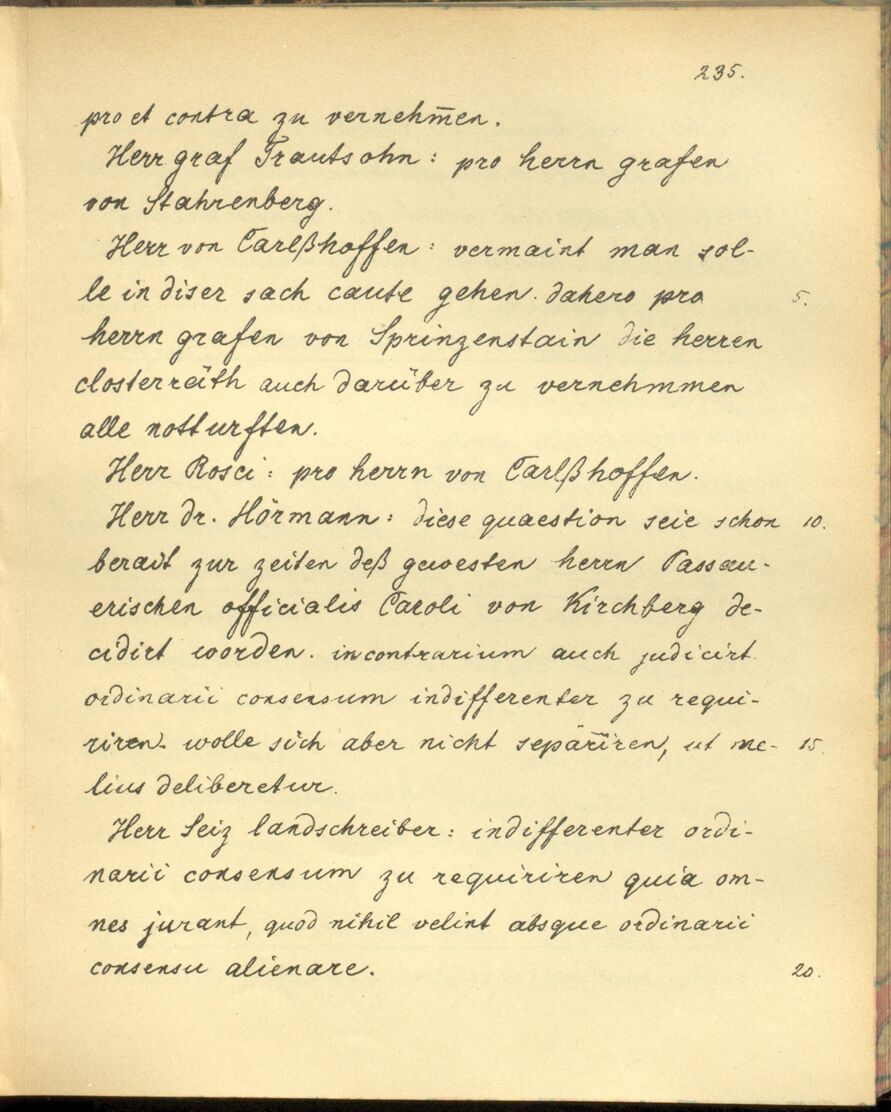 235.
pro et contra zu vernehm̅en.
Herr graf Trautsohn: pro herrn grafen
von Stahrenberg.
Herr von Carlßhoffen: vermaint man sol-
le in diser sach caute gehen. dahero pro 5.
herrn grafen von Sprinzenstain die herren
closterräth auch darüber zu vernehmmen
alle notturften.
Herr Rosci: pro herrn von Carlßhoffen.
Herr dr. Hörmann: diese quaestion seie schon 10.
berait zur zeiten deß gewesten herrn Passau-
erischen officialis Caroli von Kirchberg de-
cidirt worden. in contrarium auch judicirt
ordinarii consensum indifferenter zu requi-
riren. wolle sich aber nicht separiren, ut me- 15.
lius deliberetur.
Herr Seiz landschreiber: indifferenter ordi-
narii consensum zu requiriren quia om-
nes jurant, quod nihil velint absque ordinarii
consensu alienare. 20.